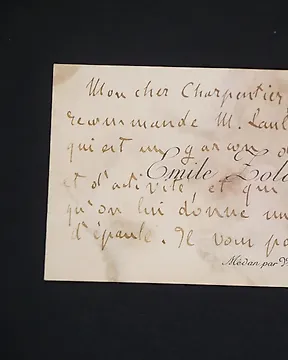 Mon cher Charpentier,
recommande M. Paul
qui est un garçon d
Emile Zola
et d'activité, et qui
qu'on lui donne un
d'épaule. Il vous pa
Médan, par V